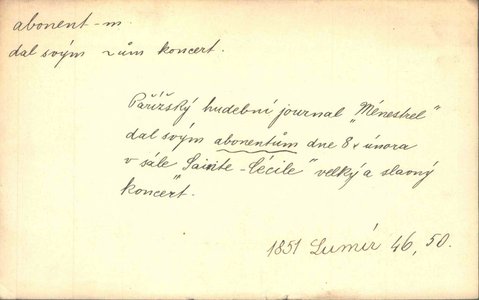 abonent -m.
dal svým ~ům koncert.
Pařížský hudební journal „Ménestrel"
dal svým abonentům dne 8. února
v sále „Sainte-Cécile" velký a slavný
koncert.
1851 Lumír 46, 50.